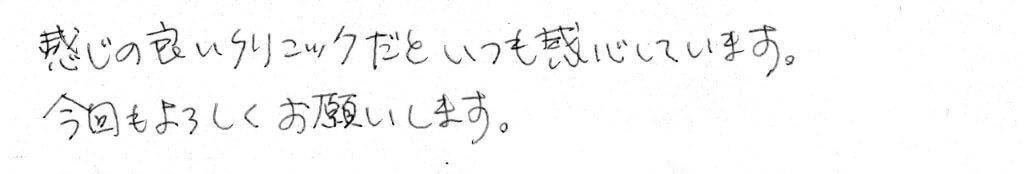 感じの良いクリニックだといつも感心しています。
今回もよろしくお願いします。